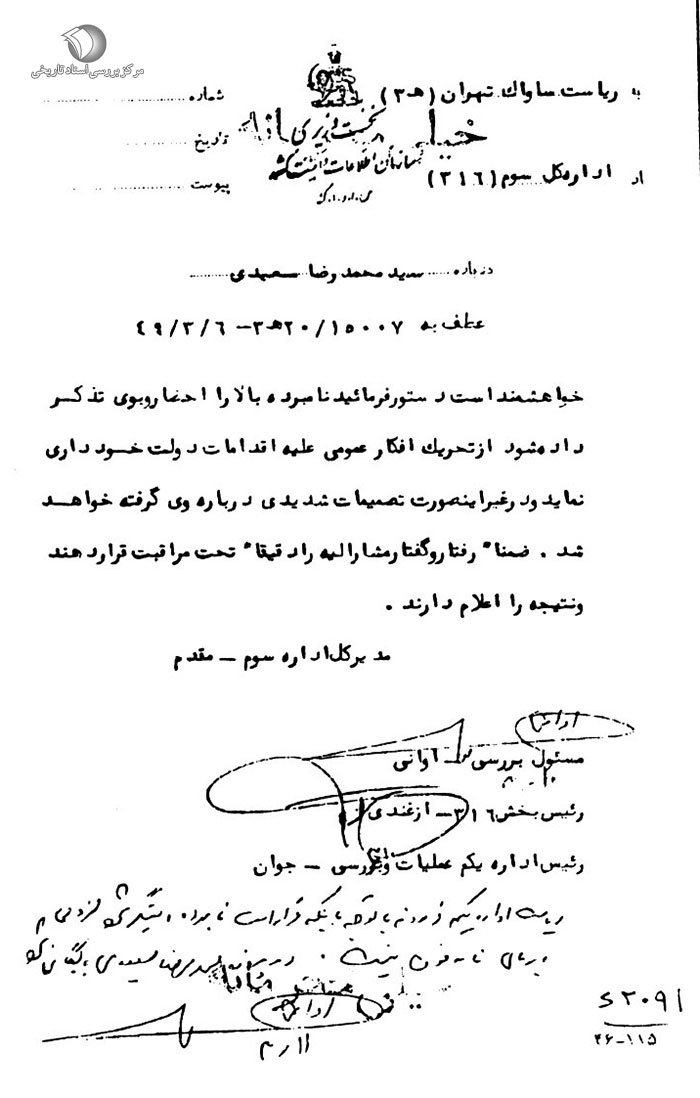 مرکز بررسی اسناد تاریخی
به ریاست ساواك تهران (هـ ۳) شماره
نخست وزیری
تاریخ
سازمان اطلاعات و امنیت کشور
از اداره کل سوم (۳۱۶) پیوست
س.ا.و.ا.ک
درباره سید محمد رضا سعیدی
عطف به ۲۰/۱۵۰۰۷هـ ۳ - ۴۹/۳/۶
خواهشمند است دستور فرمائید نامبرده بالا را احضار و بوی تذکر
داده شود از تحریك افکار عمومی علیه اقدامات دولت خودداری
نماید و در غیر اینصورت تصمیمات شدیدی درباره وی گرفته خواهد
شد . ضمنا" رفتار و گفتار مشارالیه را دقیقا" تحت مراقبت قرار دهند
و نتیجه را اعلام دارند .
مدیر کل اداره سوم - مقدم
مسئول بررسی - آوانی
رئیس بخش ۳۱۶ - ازغندی
رئیس اداره یکم عملیات و بررسی - جوان
ریاست اداره یکم فرمودند با توجه باینکه قرار است نامبرده دستگیر شود
نیست .
۱۱ر۳
۴۶-۱۱۵